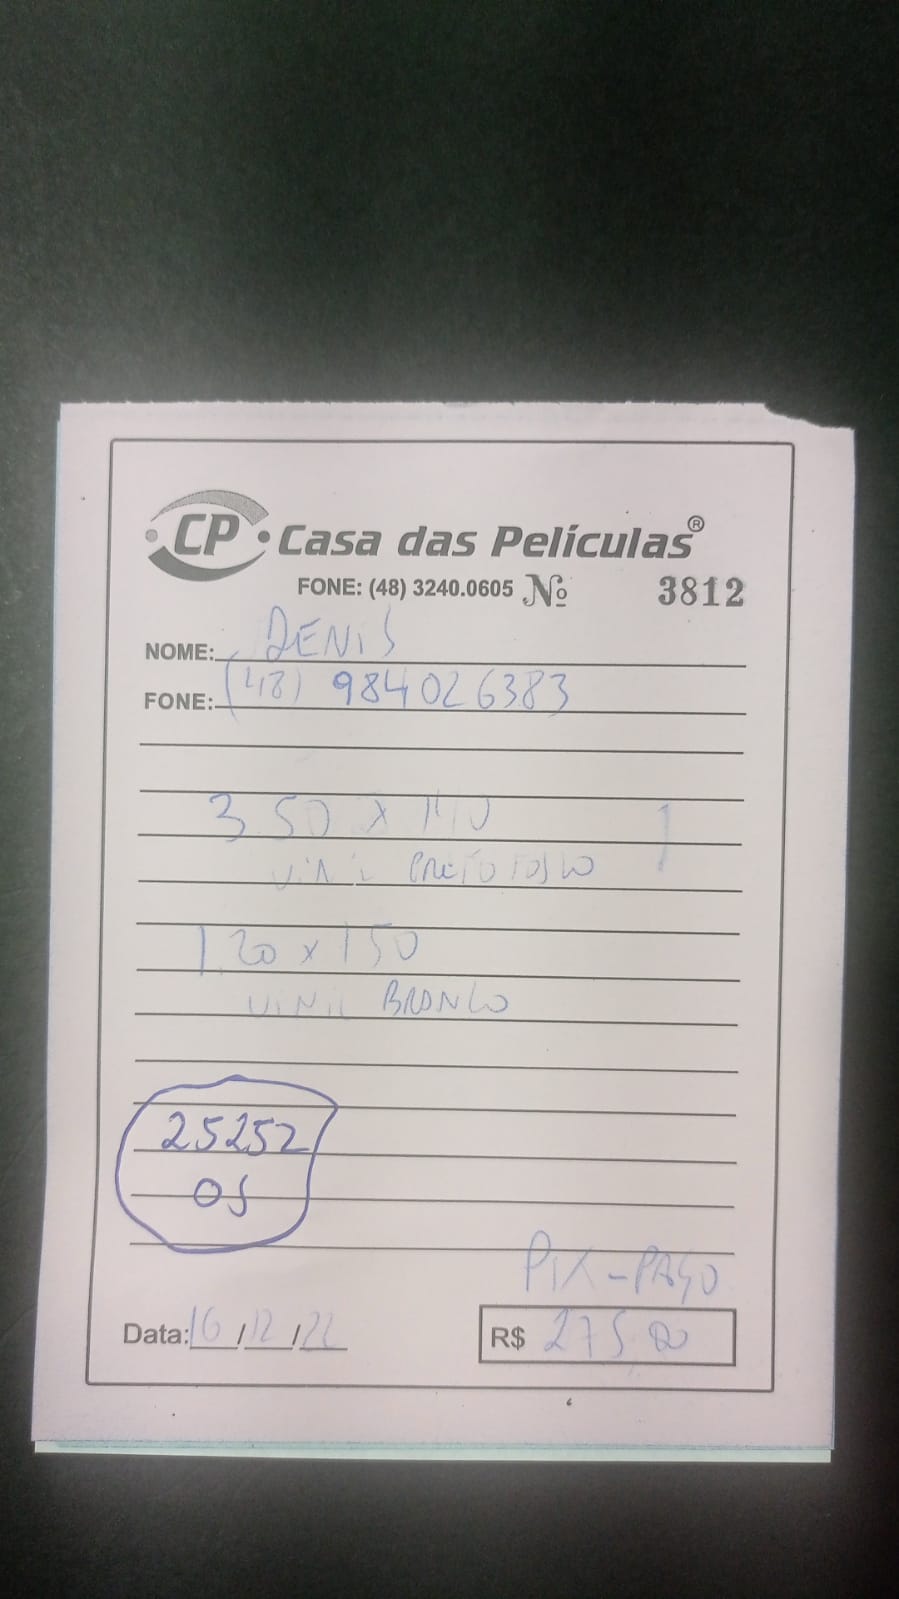 CP Casa das Películas®
FONE: (48) 3240.0605 Nº 3812
NOME: DENIS
FONE: (48) 984026383
3 50 x 140
VINIL PRETO FOSCO
1.20 x 150
VINIL BRANCO
25252
OS
PIX-PAGO
Data: 16/12/22 R$ 275,00